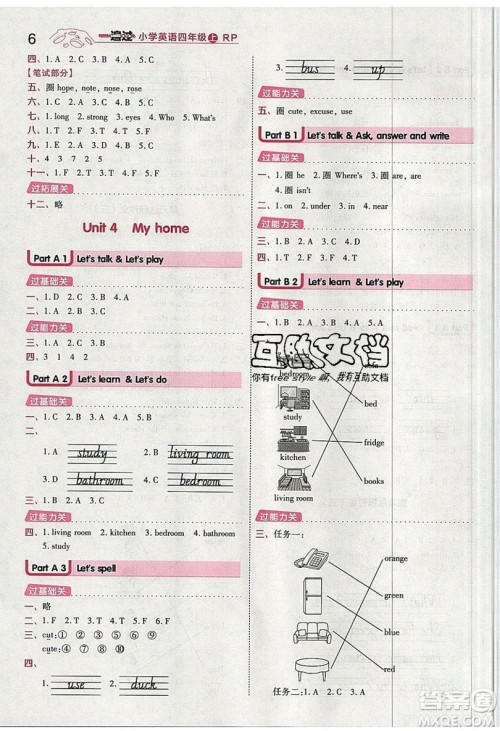 6 一遍过 小学英语四年级 上 RP
四、1. A 2. B 3. C 4. A
【笔试部分】
五、圈 hope, note, nose, rose
六、1. A 2. B 3. B 4. B 5. C
七、1. B 2. A 3. C 4. A 5. B
八、1. long 2. strong 3. eyes 4. Who 5. What's
九、1. E 2. D 3. C 4. A 5. B
十、4 3 7 2 5
十一、1. F 2. T 3. F 4. F 5. F
过拓展关
十二、略
Unit 4 My home
Part A 1 Let's talk & Let's play
过基础关
一、1. B 2. C 3. B 4. A
二、1. D 2. C 3. A 4. B
过能力关
三、1. A 2. C 3. B 4. B
四、3 1 4 2
Part A 2 Let's learn & Let's do
过基础关
一、1. C 2. B 3. A 4. D
二、
1. A study 2. C living room
3. D bathroom 4. B bedroom
三、1. B 2. A 3. A 4. C
过能力关
四、1. living room 2. kitchen 3. bedroom 4. bathroom
5. study
Part A 3 Let's spell
过基础关
一、略
二、1. B 2. D 3. A 4. C
三、cut: ① ② ③ ④
cute: ① ② ③ ④
四、
1. use 2. duck
3. bus 4. up
过能力关
五、圈 cute, excuse, use
Part B 1 Let's talk & Ask, answer and write
过基础关
一、1. 圈 in 2. 圈 Where's 3. 圈 are, are
4. 圈 isn't
二、1. on 2. under 3. in 4. near
过能力关
三、1. B 2. A 3. D 4. C
四、1. T 2. F 3. F 4. T
Part B 2 Let's learn & Let's play
过基础关
一、1. C 2. B 3. B 4. A 5. A
互动文档
你有free style吗,我有互助文档
bedroom
bed
study
fridge
kitchen
books
living room
过能力关
三、任务一:
orange
green
blue
red
任务二: 1. A 2. A 3. A
答案圈
MXQE.COM